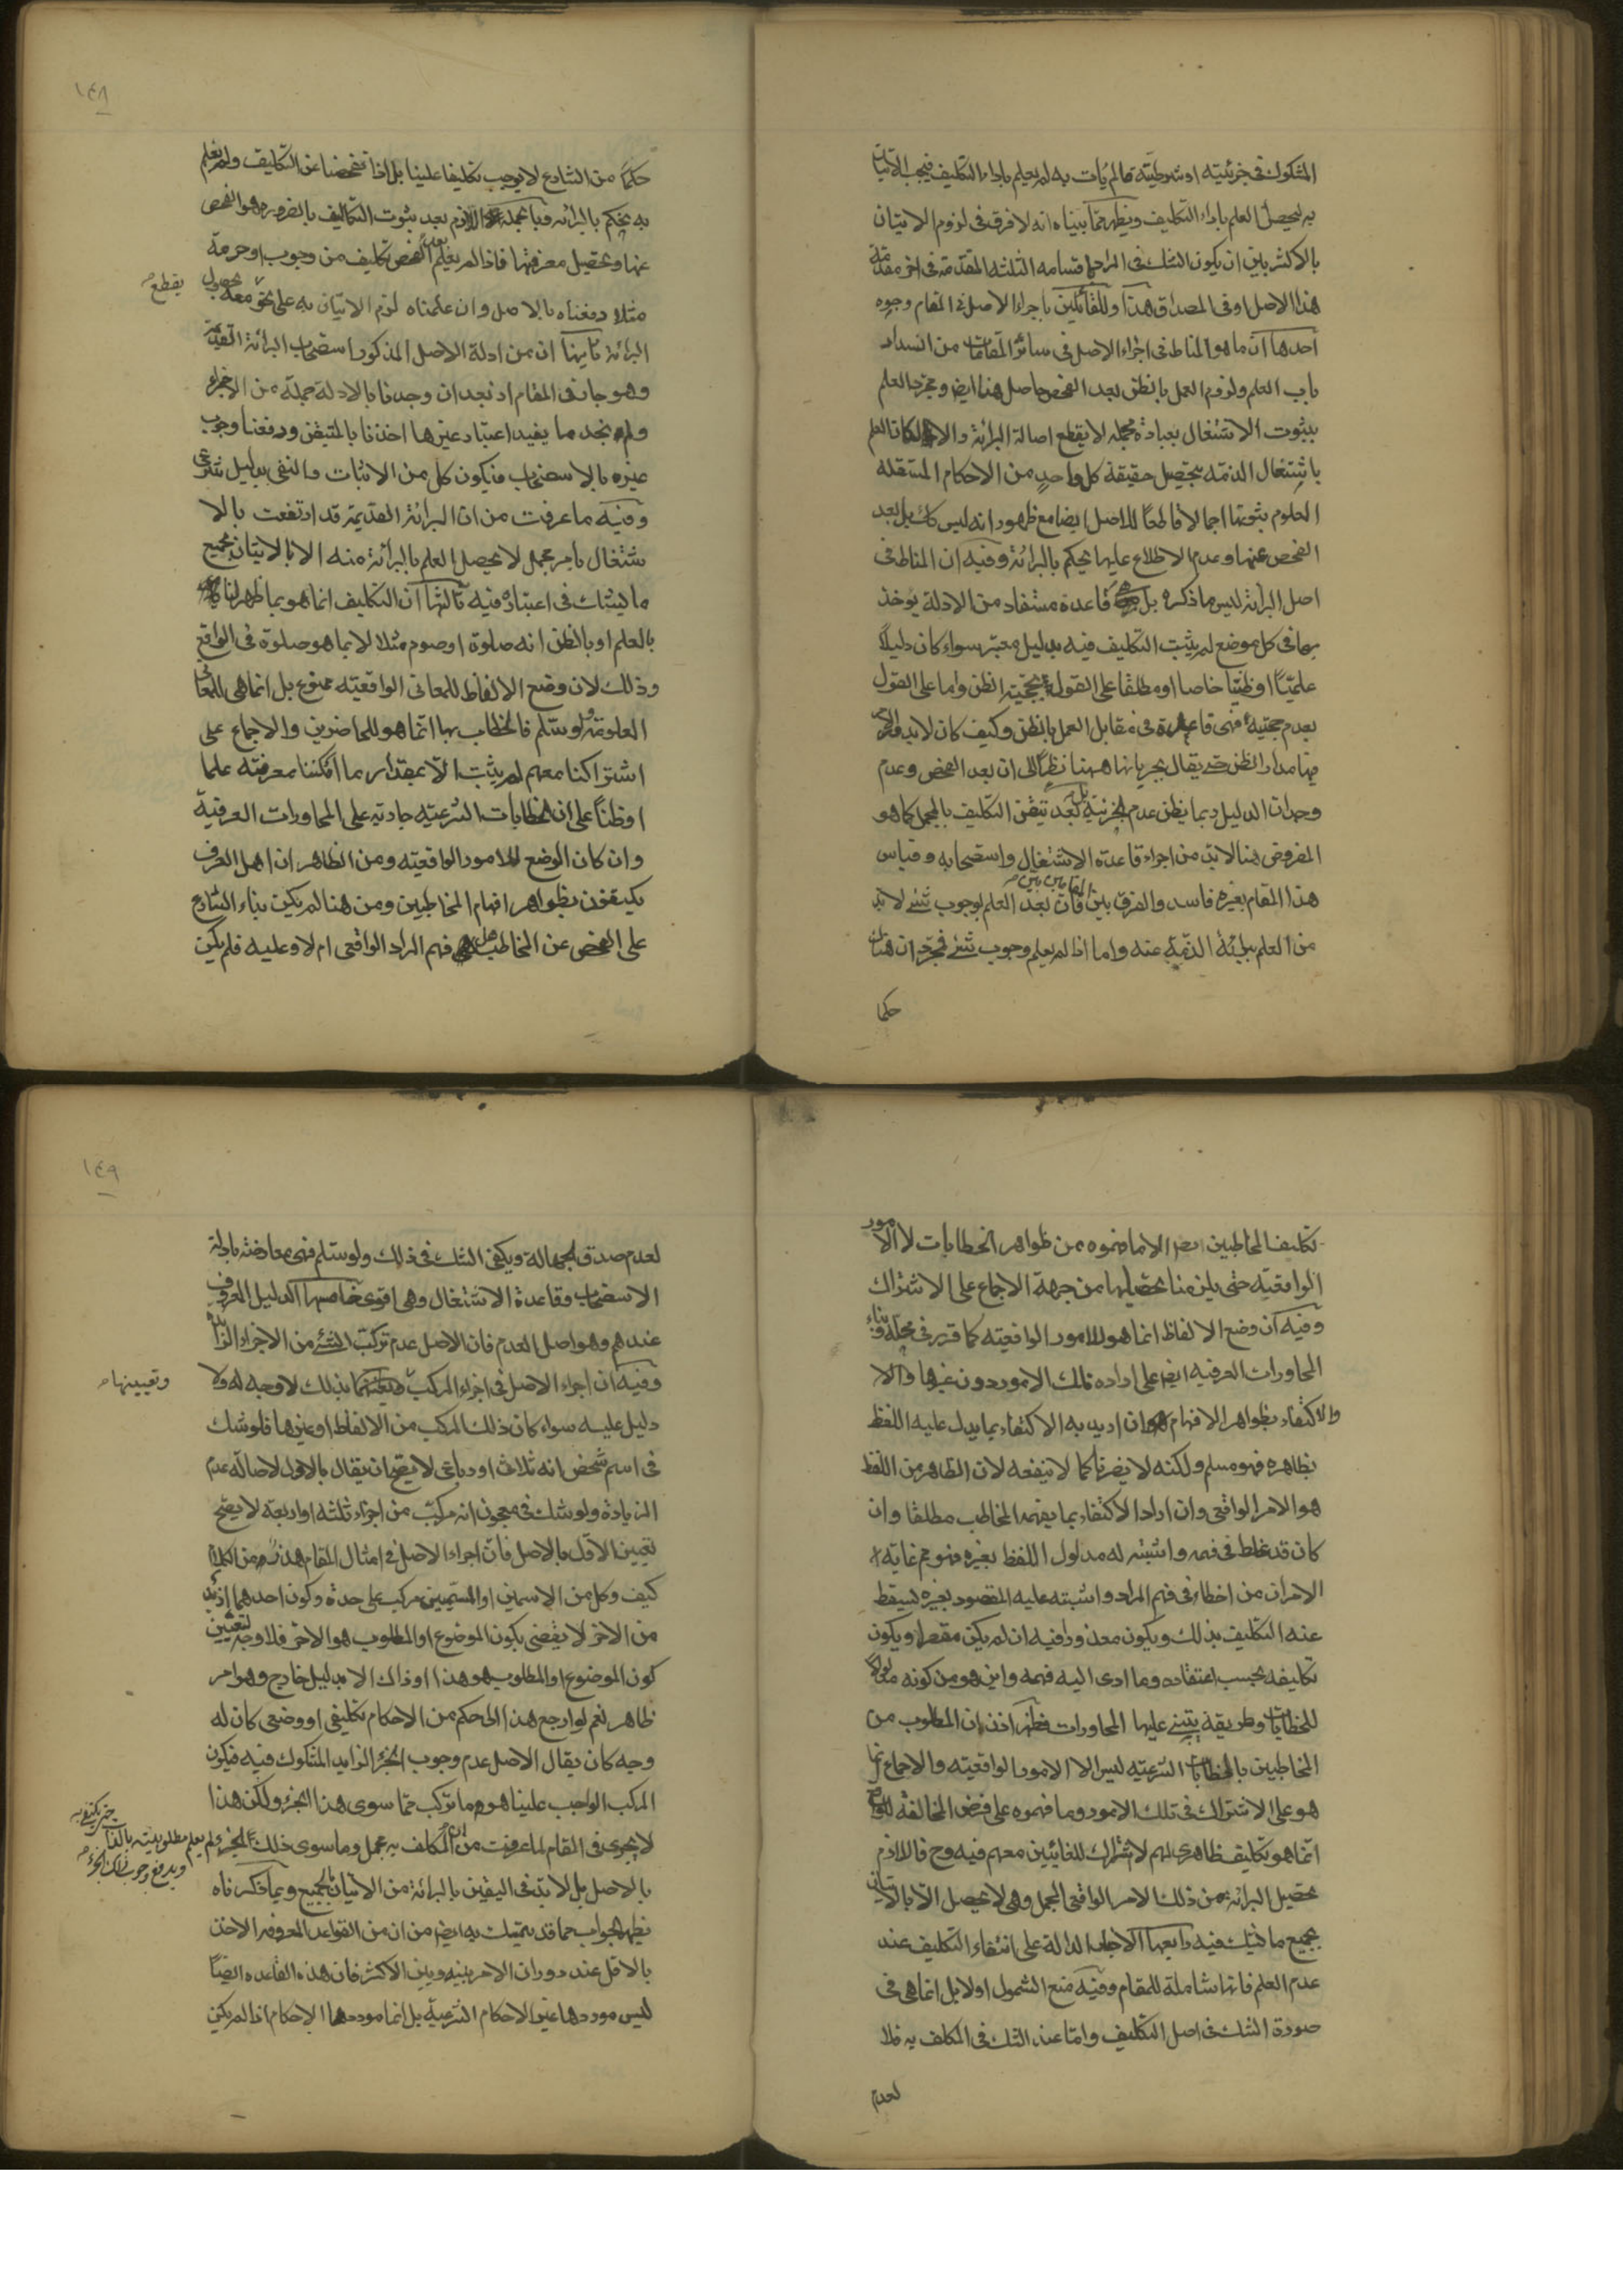 المشكوك في جزئيته او شرطيته فما لم يأت به لم يعلم باداء التكليف فيجب الاتيان
به ليحصل العلم باداء التكليف ويظهر مما بيناه انه لا فرق في لزوم الاتيان
بالاكثر بين ان يكون الشك في المراد باقسامه الثلثه المتقدمة في اخر مقدمة
هذا الاصل او في المصداق هذا وللقائلين باجراء الاصل في المقام وجوه
احدها ان ما هو المناط في اجراء الاصل في سائر المقامات من انسداد
باب العلم ولزوم العمل بالظن بعد الفحص حاصل هنا ايضا ومجرد العلم
بثبوت الاشتغال بعبادة مجمله لا يقطع اصالة البرائة والا لكان العلم
باشتغال الذمه بتحصيل حقيقة كل واحد من الاحكام المستقله
المعلوم ثبوتها اجمالا قاطعا للاصل ايضا مع ظهور انه ليس كك بل بعد
الفحص عنها وعدم الاطلاع عليها يحكم بالبرائة وفيه ان المناط في
اصل البرائة ليس ما ذكره بل قاعدة مستفاد من الادلة يؤخذ
بها في كل موضع لم يثبت التكليف فيه بدليل معتبر سواء كان دليلا
علميا او ظنيا خاصا او مطلقا على القول بحجية الظن واما على القول
بعدم حجيته فهي قاعدة في مقابل العمل بالظن وكيف كان لا يدور الامر
فيها مدار الظن حتى يقال بجريانها ههنا نظرا الى ان بعد الفحص وعدم
وجدان الدليل ربما يظن عدم الجزئية بل بعد تيقن التكليف بالمجمل كما هو
المفروض هنا لابد من اجراء قاعدة الاشتغال واستصحابه وقياس
هذا المقام بغيره فاسد والفرق بين المقامين بين فان بعد العلم بوجوب شئ لابد
من العلم ببرائة الذمة عنه واما اذا لم يعلم وجوب شئ فمجرد ان هناك
حكما
١٤٨
حكما من الشارع لا يوجب تكليفا علينا بل اذا تفحصنا عن التكليف ولم نعلم
به يحكم بالبرائه وبالجملة اللازم بعد ثبوت التكاليف بالضرورة هو الفحص
عنها وتحصيل معرفتها فاذا لم يعلم بعد الفحص تكليف من وجوب او حرمة
مثلا دفعناه بالاصل وان علمناه لزم الاتيان به على نحو يقطع معه بحصول
البرائة ثانيها ان من ادلة الاصل المذكور استصحاب البرائة القديمة
وهو جار في المقام اذ بعد ان وجدنا بالادلة جملة من الاجزاء
ولم نجد ما يفيد اعتبار غيرها اخذنا بالمتيقن ودفعنا وجوب
غيره بالاستصحاب فيكون كل من الاثبات والنفي بدليل شرعي
وفيه ما عرفت من ان البرائة القديمة قد ارتفعت بالا
شتغال بامر مجمل لا يحصل العلم بالبرائة منه الا بالاتيان بجميع
ما يشك في اعتباره فيه ثالثها ان التكليف انما هو بما ظهر لنا
بالعلم او بالظن انه صلوة او صوم مثلا لا بما هو صلوة في الواقع
وذلك لان وضع الالفاظ للمعاني الواقعيته ممنوع بل انما هي للمعاني
المعلومة ولو سلم فالخطاب بها انما هو للحاضرين والاجماع على
اشتراكنا معهم لم يثبت الا بمقدار ما امكننا معرفته علما
او ظنا على ان الخطابات الشرعيه جاديه على المحاورات العرفية
وان كان الوضع للامور الواقعيته ومن الظاهر ان اهل العرف
يكتفون بظواهر افهام المخاطبين ومن هنا لم يكن بناء الشارع
على الفحص عن المخاطب هل فهم المراد الواقعي ام لا وعليه فلم يكن
تكليف المخاطبين ايضا الا ما فهموه من ظواهر الخطابات لا الامور
الواقعيته حتى يلزمنا تحصيلها من جهة الاجماع على الاشتراك
وفيه ان وضع الالفاظ انما هو للامور الواقعيته كما قرر في محله وبناء
المحاورات العرفيه ايضا على اراده تلك الامور دون غيرها والا
والاكتفاء بظواهر الافهام ان اريد به الاكتفاء بما يدل عليه اللفظ
بظاهره فهو مسلم ولكنه لا يضرنا كما لا ينفعه لان الظاهر من اللفظ
هو الامر الواقعي وان اراد الاكتفاء بما يفهمه المخاطب مطلقا وان
كان قد غلط في فهمه واشتبه له مدلول اللفظ بغيره فهو مم غايه
الامر ان من اخطاء في فهم المراد واشتبه عليه المقصود بغيره يسقط
عنه التكليف بذلك ويكون معذورا فيه ان لم يكن مقصرا ويكون
تكليفه بحسب اعتقاده وما ادى اليه فهمه واين هو من كونه مدلولا
للخطابات وطريقة يبتني عليها المحاورات فظهر اذن ان المطلوب من
المخاطبين بالخطابات الشرعيه ليس الا الامور الواقعيته والاجماع انما
هو على الاشتراك في تلك الامور وما فهموه على فرض المخالفه للواقع
انما هو تكليف ظاهري لهم لا اشتراك للغائبين معهم فيه وح فاللازم
تحصيل البرائة من ذلك الامر الواقعي المجمل وهي لا تحصل الا بالاتيان
بجميع ما شك فيه رابعها الاخبار الدالة على انتفاء التكليف عند
عدم العلم فانها شاملة للمقام وفيه منع الشمول اولا بل انما هي في
صورة الشك في اصل التكليف واما عند الشك في المكلف به فلا
لعدم
١٤٩
لعدم صدق الجهالة ويكفي الشك في ذلك ولو سلم فهي معارضة بادلة
الاستصحاب وقاعدة الاشتغال وهي اقوى خامسها الدليل المعروف
عندهم وهو اصل العدم فان الاصل عدم تركب الشئ من الاجزاء الزائدة
وفيه ان اجراء الاصل في اجزاء المركب وتعيينها بذلك لا وجه له ولا
دليل عليه سواء كان ذلك المركب من الالفاظ او غيرها فلو شك
في اسم شخص انه ثلاثي او رباعي لا يصح ان يقال بالاول لاصالة عدم
الزيادة ولو شك في معجون انه مركب من اجزاء ثلثه او اربعة لا يصح
تعيين الاول بالاصل فان اجراء الاصل في امثال المقام
كيف وكل من الاسمين او المسميين مركب على حدة وكون احدهما ازيد
من الاخر لا يقضي بكون الموضوع او المطلوب هو الاخر فلا وجه لتعيين
كون الموضوع او المطلوب هو هذا او ذاك الا بدليل خارج وهو امر
ظاهر نعم لو ارجع هذا الى حكم من الاحكام تكليفي او وضعي كان له
وجه كان يقال الاصل عدم وجوب الجزء الزايد المشكوك فيه فيكون
المركب الواجب علينا هو ما تركب مما سوى هذا الجزء ولكن هذا
لا يجري في المقام لما عرفت من ان المكلف به مجمل وما سوى ذلك الجزء لم يعلم مطلوبيته
حتى يكتفى به ويدفع وجوب ذلك الجزء
بالاصل بل لابد في اليقين بالبرائة من الاتيان بالجميع وبما ذكرناه
يظهر الجواب عما قد يتمسك به ايضا من ان من القواعد المعروفه الاخذ
بالاقل عند دوران الامر بينه وبين الاكثر فان هذه القاعده ايضا
ليس موردها غير الاحكام الشرعية بل انما موردها الاحكام اذا لم يكن